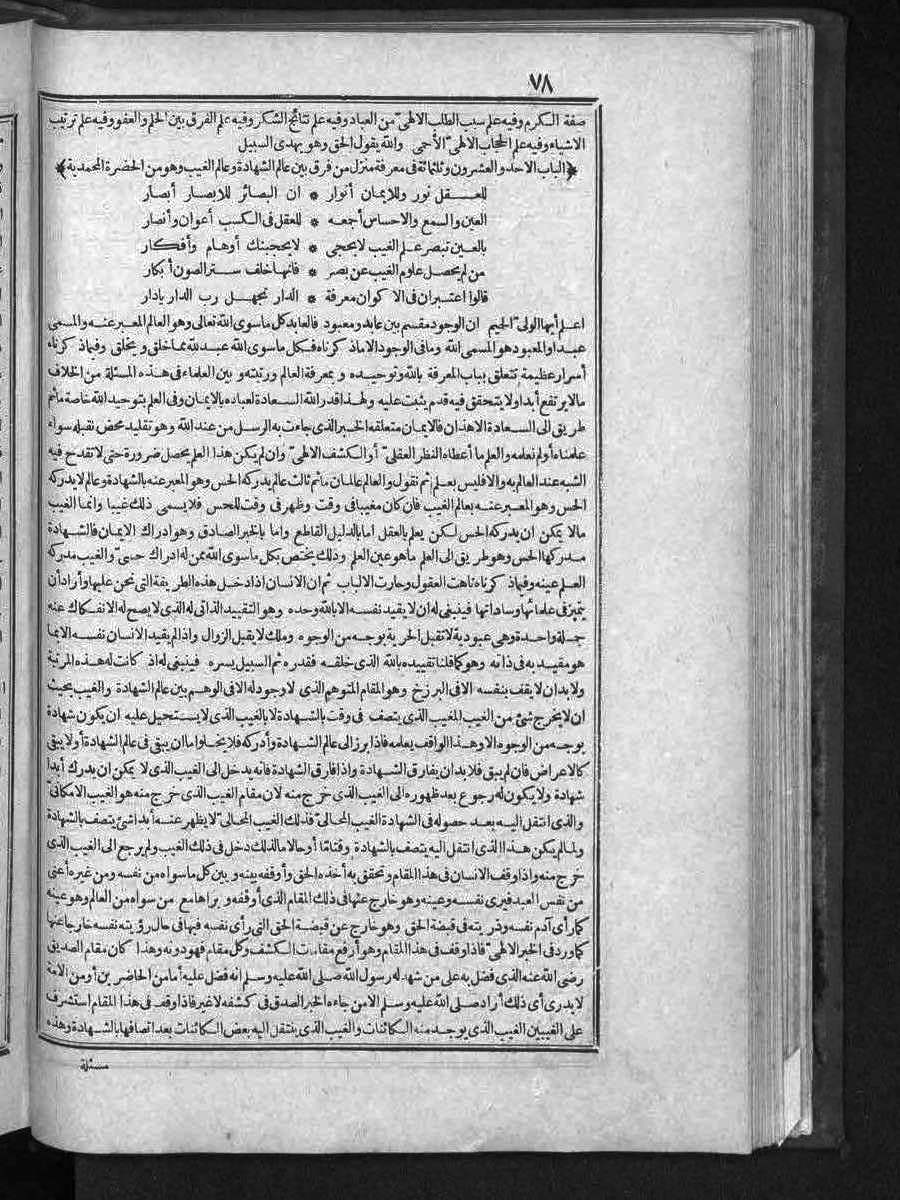 ٧٨
صفة الكرم وفيه علم سبب الطلب الالهى من العباد وفيه علم نتائج الشكر وفيه علم الفرق بين الحلم والعفو وفيه علم ترتيب
الاشياء وفيه علم الحجاب الالهى الأحمى والله يقول الحق وهو يهدى السبيل
﴿الباب الاحد والعشرون وثلثمائة فى معرفة منزل من فرق بين عالم الشهادة وعالم الغيب وهو من الحضرة المحمدية﴾
للعـقل نور وللايمان أنوار * ان البصائر للابصار أبصار
العين والسمع والاحساس أجمعه * للعقل فى الكسب أعوان وأنصار
بالعين تبصر علم الغيب لايحجى * لايحجبنك أوهام وأفكار
من لم يحصل علوم الغيب عن بصر * فانها خلف ستر الصون أبكار
قالوا اعتبران فى الاكوان معرفة * الدار تجهل رب الدار يادار
اعلم أيها الولى الحميم ان الوجود مقسم بين عابد ومعبود فالعابد كل ماسوى الله تعالى وهو العالم المعبر عنه والمسمى
عبدا والمعبود هو المسمى الله وما فى الوجود الاماذكرناه فكل ماسوى الله عبد لله مما خلق ويخلق وفيماذكرناه
أسرار عظيمة تتعلق بباب المعرفة بالله وتوحيده و بمعرفة العالم ورتبته و بين العلماء فى هذه المسئلة من الخلاف
مالا يرتفع أبدا ولا يتحقق فيه قدم يثبت عليه ولهذا قدر الله السعادة لعباده بالايمان وفى العلم بتوحيد الله خاصة ماثم
طريق الى السعادة الاهذان فالايمان متعلقه الخبر الذى جاءت به الرسل من عند الله وهو تقليد محض نقبله سواء
علمناه أولم نعلمه والعلم ما أعطاه النظر العقلى أوالكشف الالهى وان لم يكن هذا العلم يحصل ضرورة حتى لا تقدح فيه
الشبه عند العالم به والا فليس بعلم ثم نقول والعالم عالمان ماثم ثالث عالم يدركه الحس وهو المعبر عنه بالشهادة وعالم لا يدركه
الحس وهو المعبر عنه بعالم الغيب فان كان مغيبا فى وقت وظهر فى وقت للحس فلايسمى ذلك غيبا وانما الغيب
مالا يمكن ان يدركه الحس لكن يعلم بالعقل امابالدليل القاطع واما بالخبر الصادق وهو ادراك الايمان فالشهادة
مدركها الحس وهو طريق الى العلم ماهو عين العلم وذلك يختص بكل ماسوى الله ممن له ادراك حسى والغيب مدركه
العلم عينه وفيماذكرناه تاهت العقول وحارت الالباب ثم ان الانسان اذا دخل هذه الطريقة التى نحن عليها وأراد أن
يتميز فى علمائها وساداتها فينبغى له ان لا يقيد نفسه الابالله وحده وهو التقييد الذاتى له الذى لا يصح له الانفكاك عنه
جملة واحدة وهى عبودية لاتقبل الحرية بوجه من الوجوه وملك لا يقبل الزوال واذا لم يقيد الانسان نفسه الابما
هو مقيد به فى ذاته وهو كما قلنا تقييده بالله الذى خلقه فقدره ثم السبيل يسره فينبغى له اذ كانت له هذه المرتبة
ولابد ان لا يقف بنفسه الافى البرزخ وهو المقام المتوهم الذى لا وجود له الافى الوهم بين عالم الشهادة والغيب بحيث
ان لا يخرج شئ من الغيب المغيب الذى يتصف فى وقت بالشهادة لا بالغيب الذى لا يستحيل عليه ان يكون شهادة
بوجه من الوجوه الا وهذا الواقف يعلمه فاذا برز الى عالم الشهادة وأدركه فلا يخلو اما ان يبقى فى عالم الشهادة أولا يبقى
كالاعراض فان لم يبق فلا بد ان يفارق الشهادة واذا فارق الشهادة فانه يدخل الى الغيب الذى لا يمكن ان يدرك أبدا
شهادة ولا يكون له رجوع بعد ظهوره الى الغيب الذى خرج منه لان مقام الغيب الذى خرج منه هو الغيب الامكانى
والذى انتقل اليه بعد حصوله فى الشهادة الغيب المحالى فذلك الغيب المحالى لا يظهر عنه أبدا شئ يتصف بالشهادة
ولما لم يكن هذا الذى انتقل اليه يتصف بالشهادة وقتا ما أوحالا ما لذلك دخل فى ذلك الغيب ولم يرجع الى الغيب الذى
خرج منه واذا وقف الانسان فى هذا المقام وتحقق به أخذه الحق وأوقفه بينه وبين كل ماسواه من نفسه ومن غيره أعنى
من نفس العبد فيرى نفسه وعينه وهو خارج عنها فى ذلك المقام الذى أوقفه و يراها مع من سواه من العالم وهو عينه
كمارأى آدم نفسه وذريته فى قبضة الحق وهو خارج عن قبضة الحق التى رأى نفسه فيها فى حال رؤيته نفسه خارجا عنها
كماورد فى الخبر الالهى فاذا وقف فى هذا المقام وهو أرفع مقامات الكشف وكل مقام فهو دونه وهذا كان مقام الصديق
رضى الله عنه الذى فضل به على من شهد له رسول الله صلى الله عليه وسلم انه فضل عليه أمامن الحاضرين أومن الامة
لا يدرى أى ذلك أراد صلى الله عليه وسلم الامن جاءه الخبر الصدق فى كشفه لاغير فاذا وقف فى هذا المقام استشرف
على الغيبين الغيب الذى يوجد منه الكائنات والغيب الذى ينتقل اليه بعض الكائنات بعد اتصافها بالشهادة وهذه
مسئلة